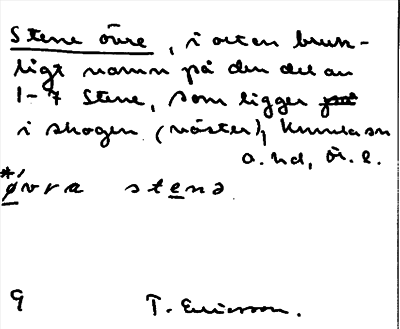 Stene övre, i orten bruk-
ligt namn på den del av
1-7 Stene, som ligger
i skogen (väster),
a. nd, ö. l.
*ǿvra stenə
9 T. Ericsson.